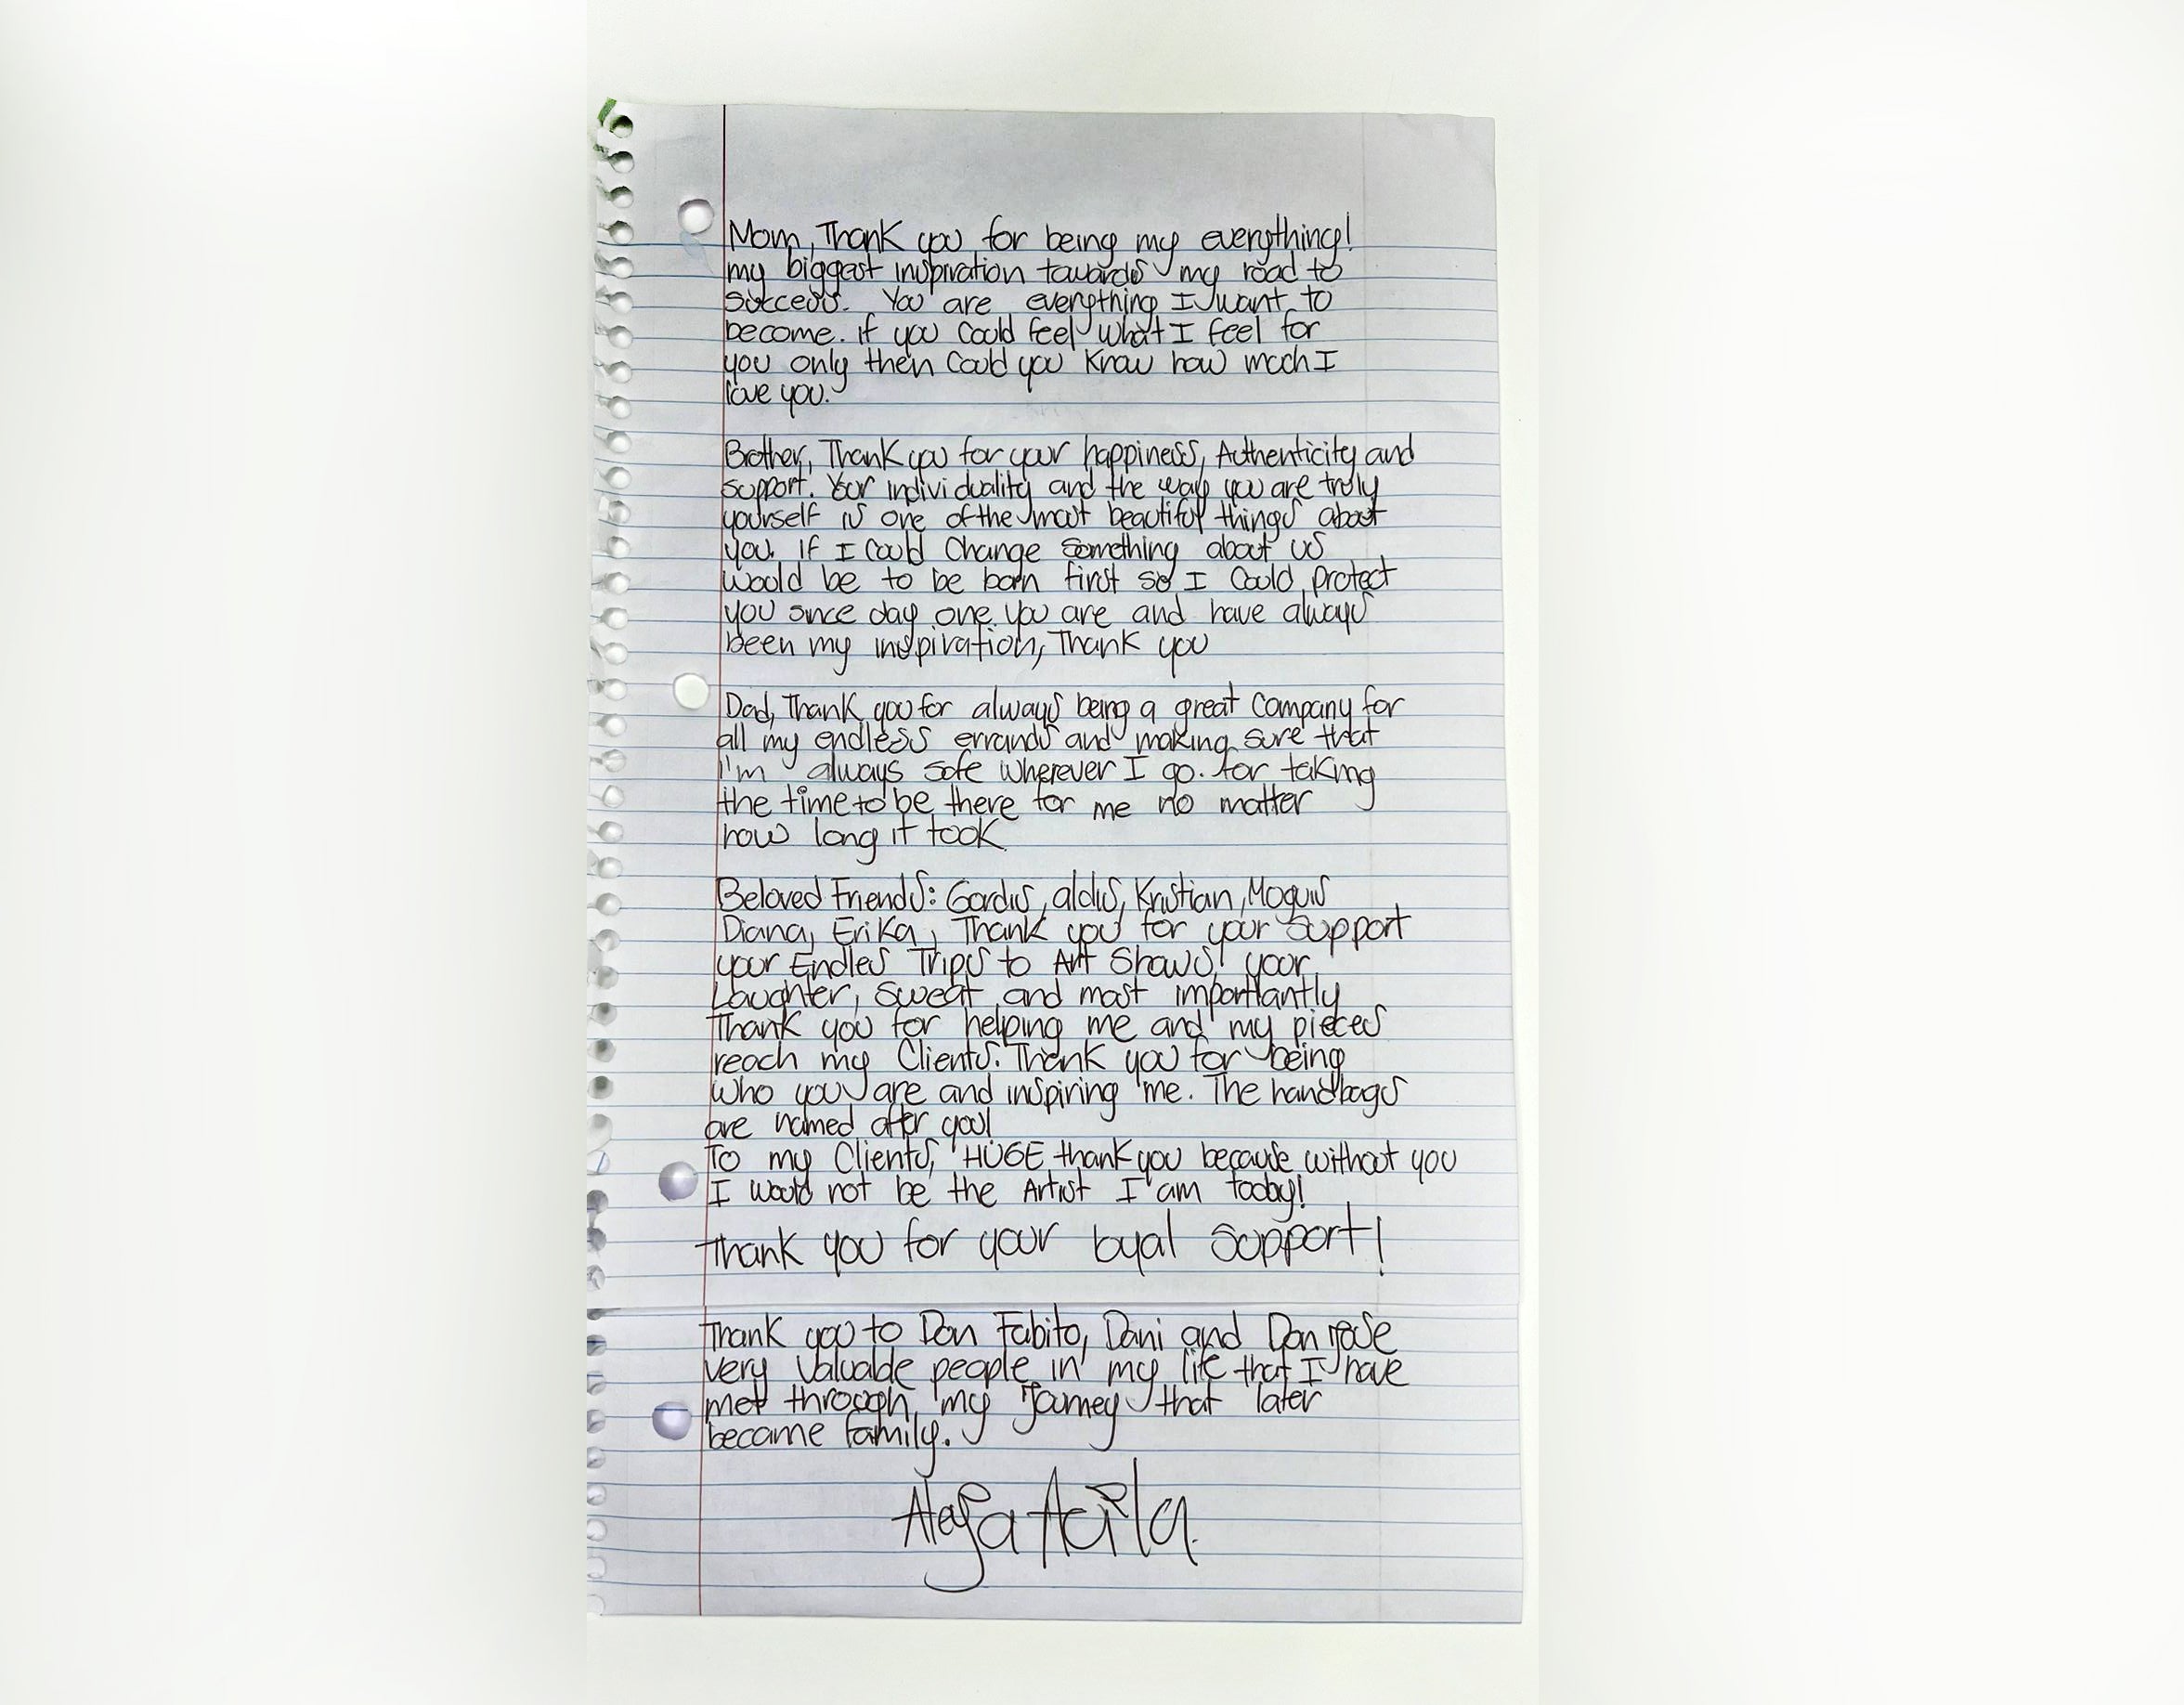 Mom, Thank you for being my everything!
my biggest inspiration towards my road to
success. You are everything I want to
become. if you could feel what I feel for
you only then could you know how much I
love you.
Brother, Thank you for your happiness, Authenticity and
support. Your individuality and the way you are truly
yourself is one of the most beautiful things about
you. If I could Change something about us
would be to be born first so I could protect
you since day one. you are and have always
been my inspiration, Thank you
Dad, Thank you for always being a great company for
all my endless errands and making sure that
I'm always safe wherever I go. for taking
the time to be there for me no matter
how long it took
Beloved Friends: Gordis, aldis, Kristian, Moguis
Diana, Erika, Thank you for your support
your Endles Trips to Art Shows! your
Laughter, sweat and most importantly
Thank you for helping me and my pieces
reach my Clients. Thank you for being
who you are and inspiring me. The handbags
are named after you!
To my Clients, HUGE thank you because without you
I would not be the Artist I am today!
Thank you for your loyal support!
Thank you to Don Fabito, Dani and Don Jose
very valuable people in my life that I have
met through my Journey that later
became family.